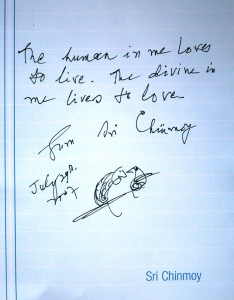 The human in me loves
to live. The divine in
me lives to love.
From Sri Chinmoy
July
2007
Sri Chinmoy